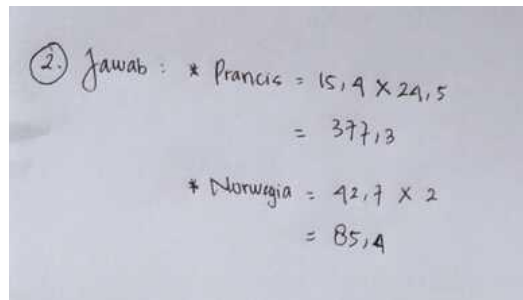 2. Jawab : * Prancis = 15,4 X 24,5
= 377,3
* Norwegia = 42,7 X 2
= 85,4